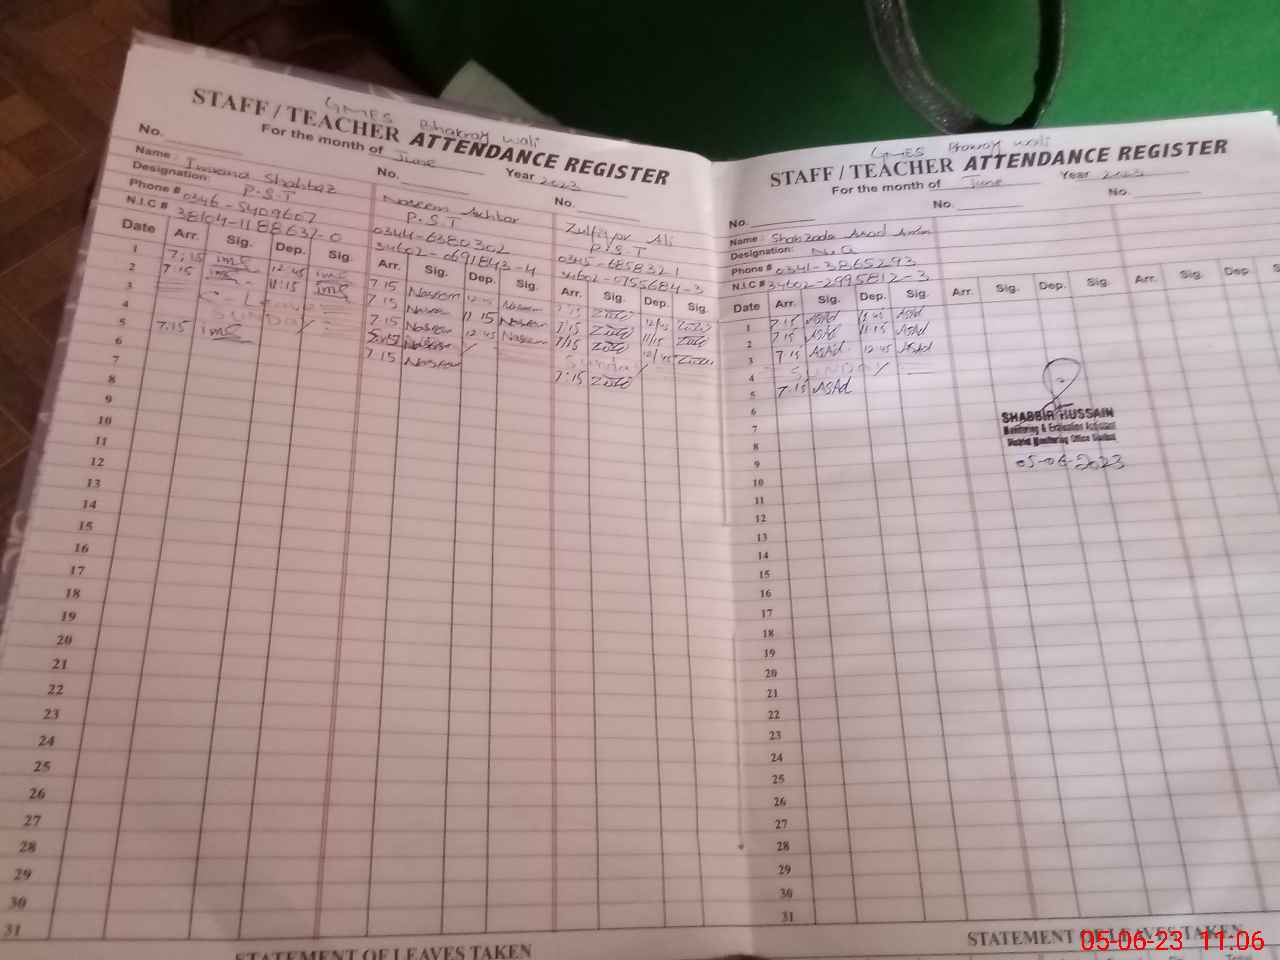 GMES Bhakray wali
STAFF / TEACHER ATTENDANCE REGISTER
For the month of June Year 2023
No. No. No.
Name: Imrana Shahbaz Naseem Akhtar Zulfiqar Ali
Designation: P.S.T P.S.T P.S.T
Phone # 0346-5409607 0344-6380302 0345-6858321
N.I.C # 38104-1188637-0 34602-0691843-4 34602-0755684-3
Date Arr. Sig. Dep. Sig. Arr. Sig. Dep. Sig. Arr. Sig. Dep. Sig.
1 7:15 12 45 7 15 Naseem 12 45 Naseem 7:15 12/45
2 7:15 11:15 7 15 Naseem 11 15 Naseem 7/15 11/15
3 7 15 Naseem 12 45 Naseem 7/15 12/45
4 Sunday
5 7:15 7 15 Naseem 7:15
6
7
8
9
10
11
12
13
14
15
16
17
18
19
20
21
22
23
24
25
26
27
28
29
30
31
STATEMENT OF LEAVES TAKEN
GMES wali
STAFF / TEACHER ATTENDANCE REGISTER
For the month of June Year 2023
No. No. No.
Name: Shahzada Asad
Designation:
Phone # 0341-3865293
N.I.C # 34602-2995812-3
Date Arr. Sig. Dep. Sig. Arr. Sig. Dep. Sig. Arr. Sig. Dep.
1 7:15 ASAd 12 45 ASAd
2 7:15 ASAd 11:15 ASAd
3 7:15 ASAd 12:45 ASAd
4 SUNDAY
5 7:15 ASAd
6
7
8
9
10
11
12
13
14
15
16
17
18
19
20
21
22
23
24
25
26
27
28
29
30
31
SHABBIR HUSSAIN
Monitoring & Evaluation Assistant
District Monitoring Office
05-06-2023
STATEMENT OF LEAVES TAKEN
05-06-23 11:06